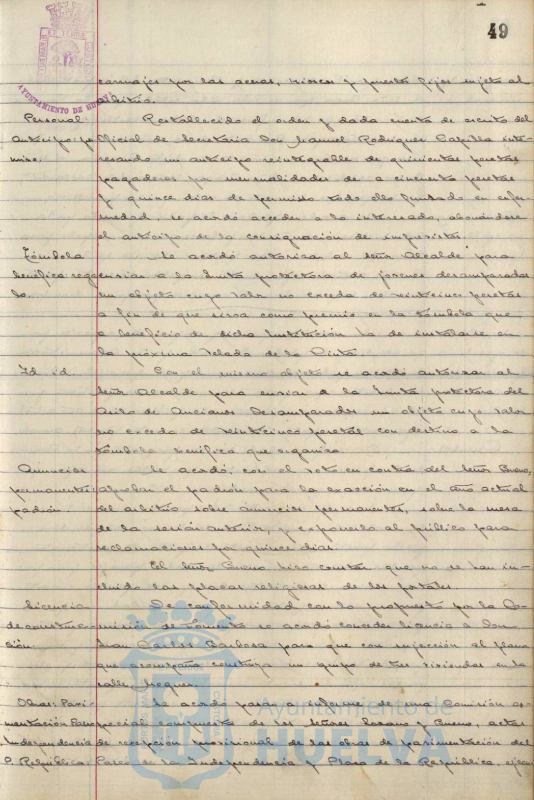 49
AYUNTAMIENTO DE HUELVA
carruajes por las aceras, kioscos y puestos fijos sujeto al
arbitrio.
Personal
Anticipo: per
miso.
Restablecido el orden y dada cuenta de escrito del
Oficial de Secretaría Don Manuel Rodriguez Capilla inte-
resando un anticipo reintegrable de quinientas pesetas
pagaderas por mensualidades de a cincuenta pesetas
y quince dias de permiso todo ello fundado en enfer-
medad, se acordó acceder a lo interesado, abonándose
el anticipo de la consignación de imprevistos.
Tómbola
benéfica: rega
lo.
Se acordó autorizar al Señor Alcalde para
enviar a la Junta protectora de jovenes desamparadas
un objeto cuyo valor no exceda de veinticinco pesetas
a fin de que sirva como premio en la tómbola que
a beneficio de dicha Institución ha de instalarse en
la próxima Velada de la Cinta.
Id. id.
Con el mismo objeto se acordó autorizar al
Señor Alcalde para enviar a la Junta protectora del
Asilo de Ancianos Desamparados un objeto cuyo valor
no exceda de veinticinco pesetas con destino a la
tómbola benéfica que organiza
Anuncios
permanentes:
padrón.
Se acordó, con el voto en contra del Señor Bueno,
aprobar el padrón para la exacción en el año actual
del arbitrio sobre anuncios permanentes, sobre la mesa
de la sesión anterior, y exponerlo al público para
reclamaciones por quince dias.
El Señor Bueno hizo constar que no se han in-
cluido las placas religiosas de los portales
Licencia
de construc-
ción
De conformidad con lo propuesto por la Co-
misión de Fomento se acordó conceder licencia a Don
Juan Carlos Barbosa para que con sujeción al plano
que acompaña construya un grupo de tres viviendas en la
calle Moguer.
Obras: Pavi-
mentación Paseo
Independencia
P. República:
Se acordó pase a informe de una Comisión es-
pecial compuesta de los Señores Lozano y Bueno, actas
de recepción provisional de las obras de pavimentación del
Paseo de la Independencia y Plaza de la República, ejecu-
Ayuntamiento de
HUELVA